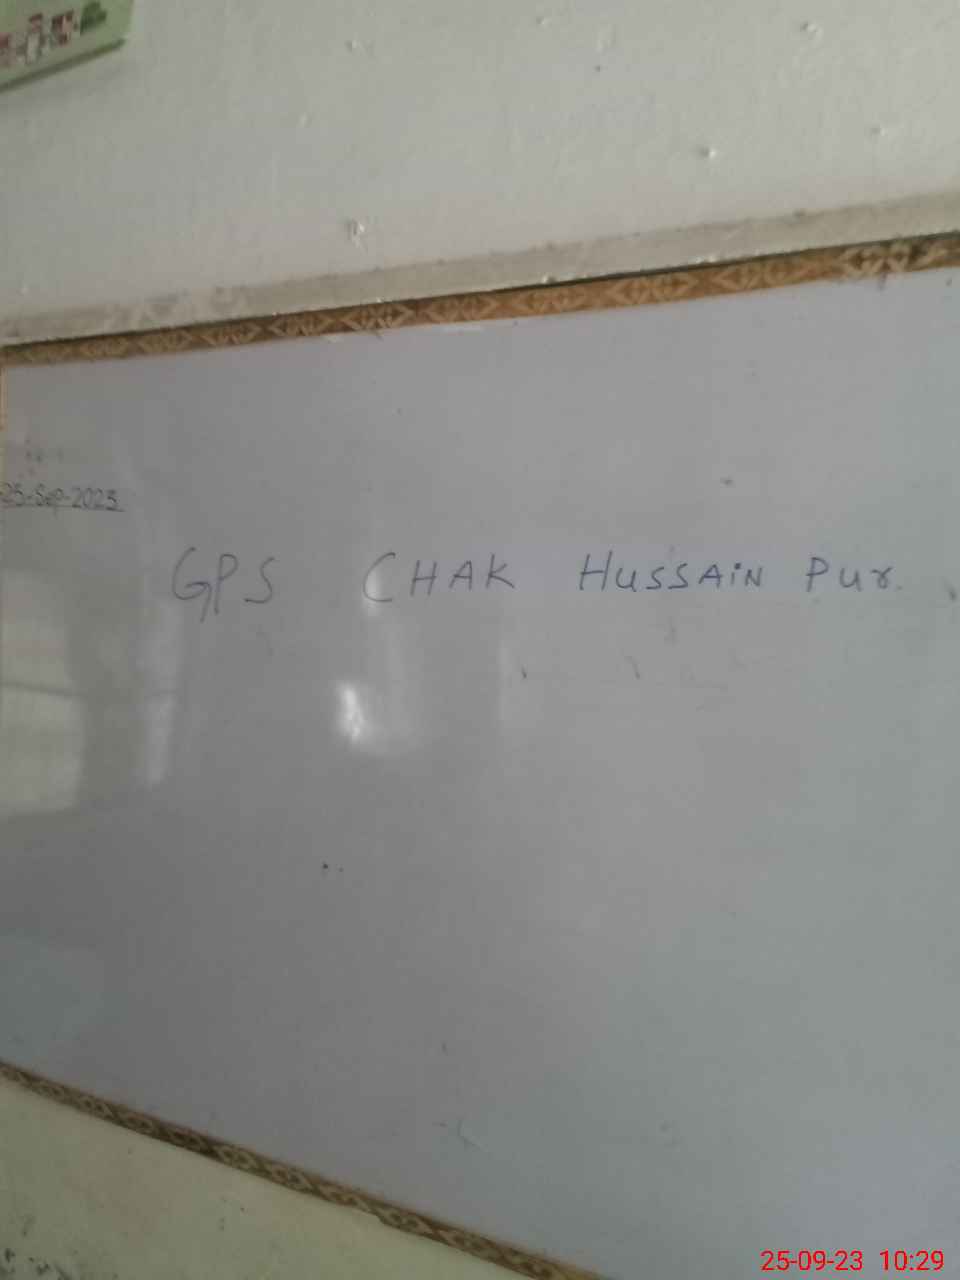 25-Sep-2023
GPS CHAK HUSSAiN Pur.
25-09-23 10:29